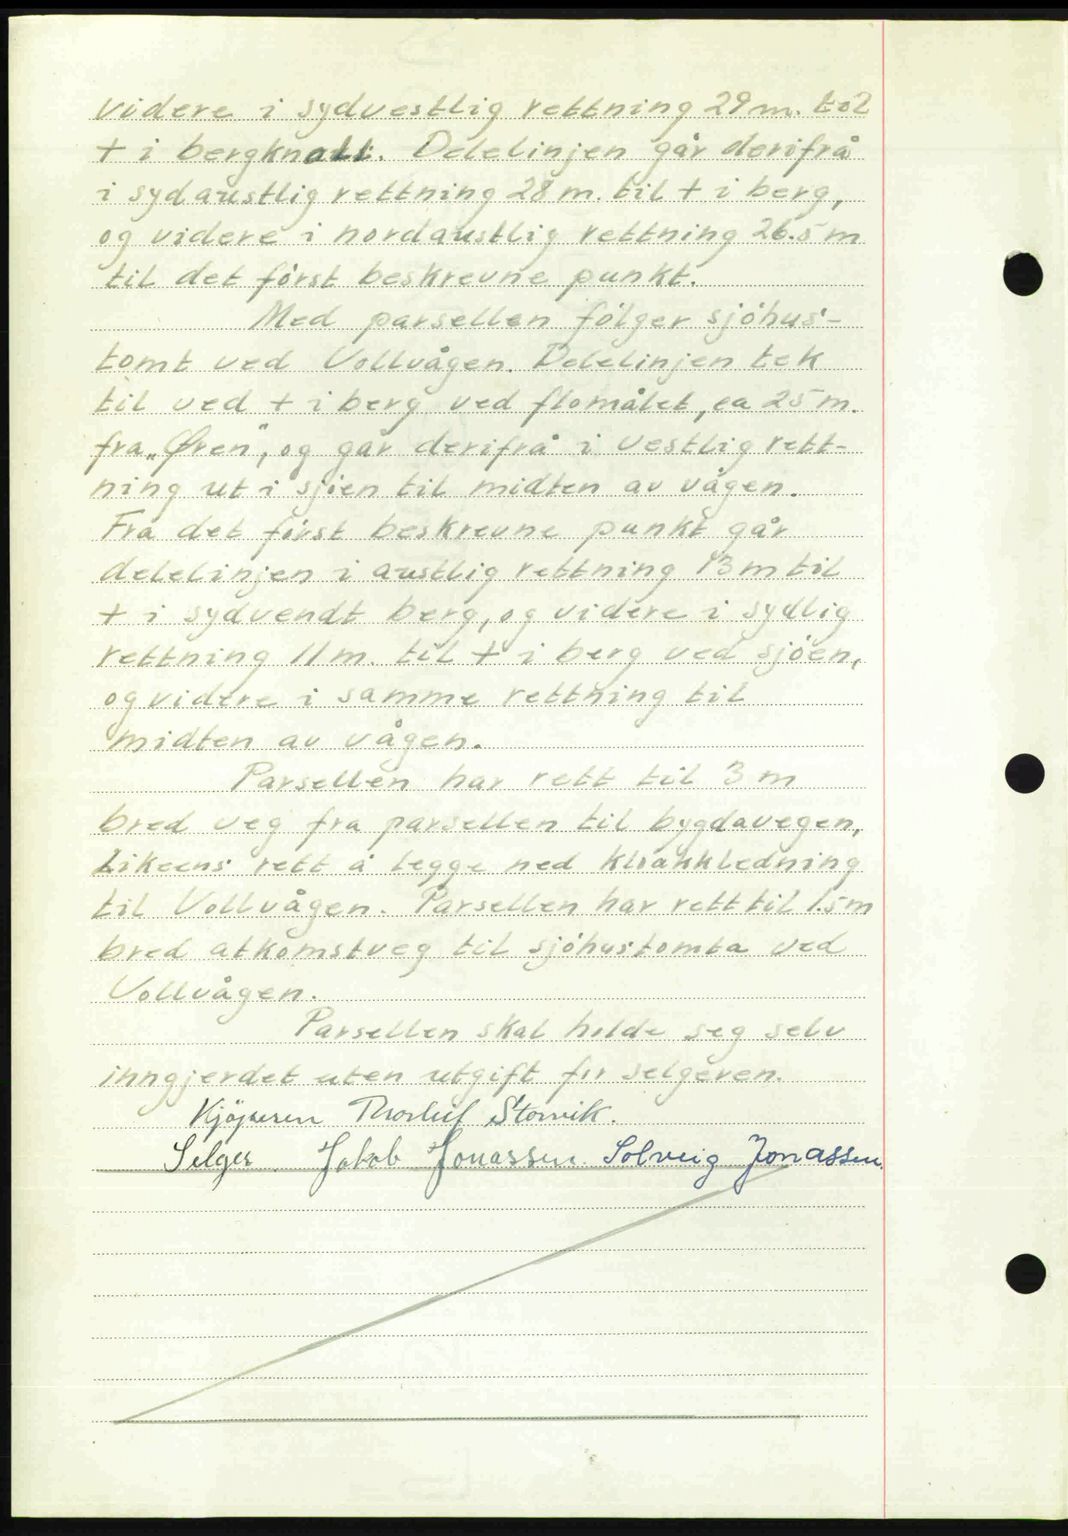 videre i sydvestlig rettning 29 m. til
+ i bergknatt. Delelinjen går derifrå
i sydaustlig rettning 28 m. til + i berg,
og videre i nordaustlig rettning 26.5 m
til det först beskrevne punkt.
Med parsellen fölger sjöhus-
tomt ved Vollvågen. Delelinjen tek
til ved + i berg ved flomålet, ca 25 m.
fra „Øren", og går derifrå i vestlig rett-
ning ut i sjöen til midten av vågen.
Fra det först beskrevne punkt går
delelinjen i austlig rettning 13 m til
+ i sydvendt berg, og videre i sydlig
rettning 11 m. til + i berg ved sjöen,
og videre i samme rettning til
midten av vågen.
Parsellen har rett til 3 m
bred veg fra parsellen til bygdavegen,
Likeens rett å legge ned kloakkledning
til Vollvågen. Parsellen har rett til 1.5 m
bred atkomstveg til sjöhustomta ved
Vollvågen.
Parsellen skal holde seg selv
inngjerdet uten utgift for selgeren.
Kjöperen Thorleif Storvik.
Selger Jakob Jonassen Solveig Jonassen.